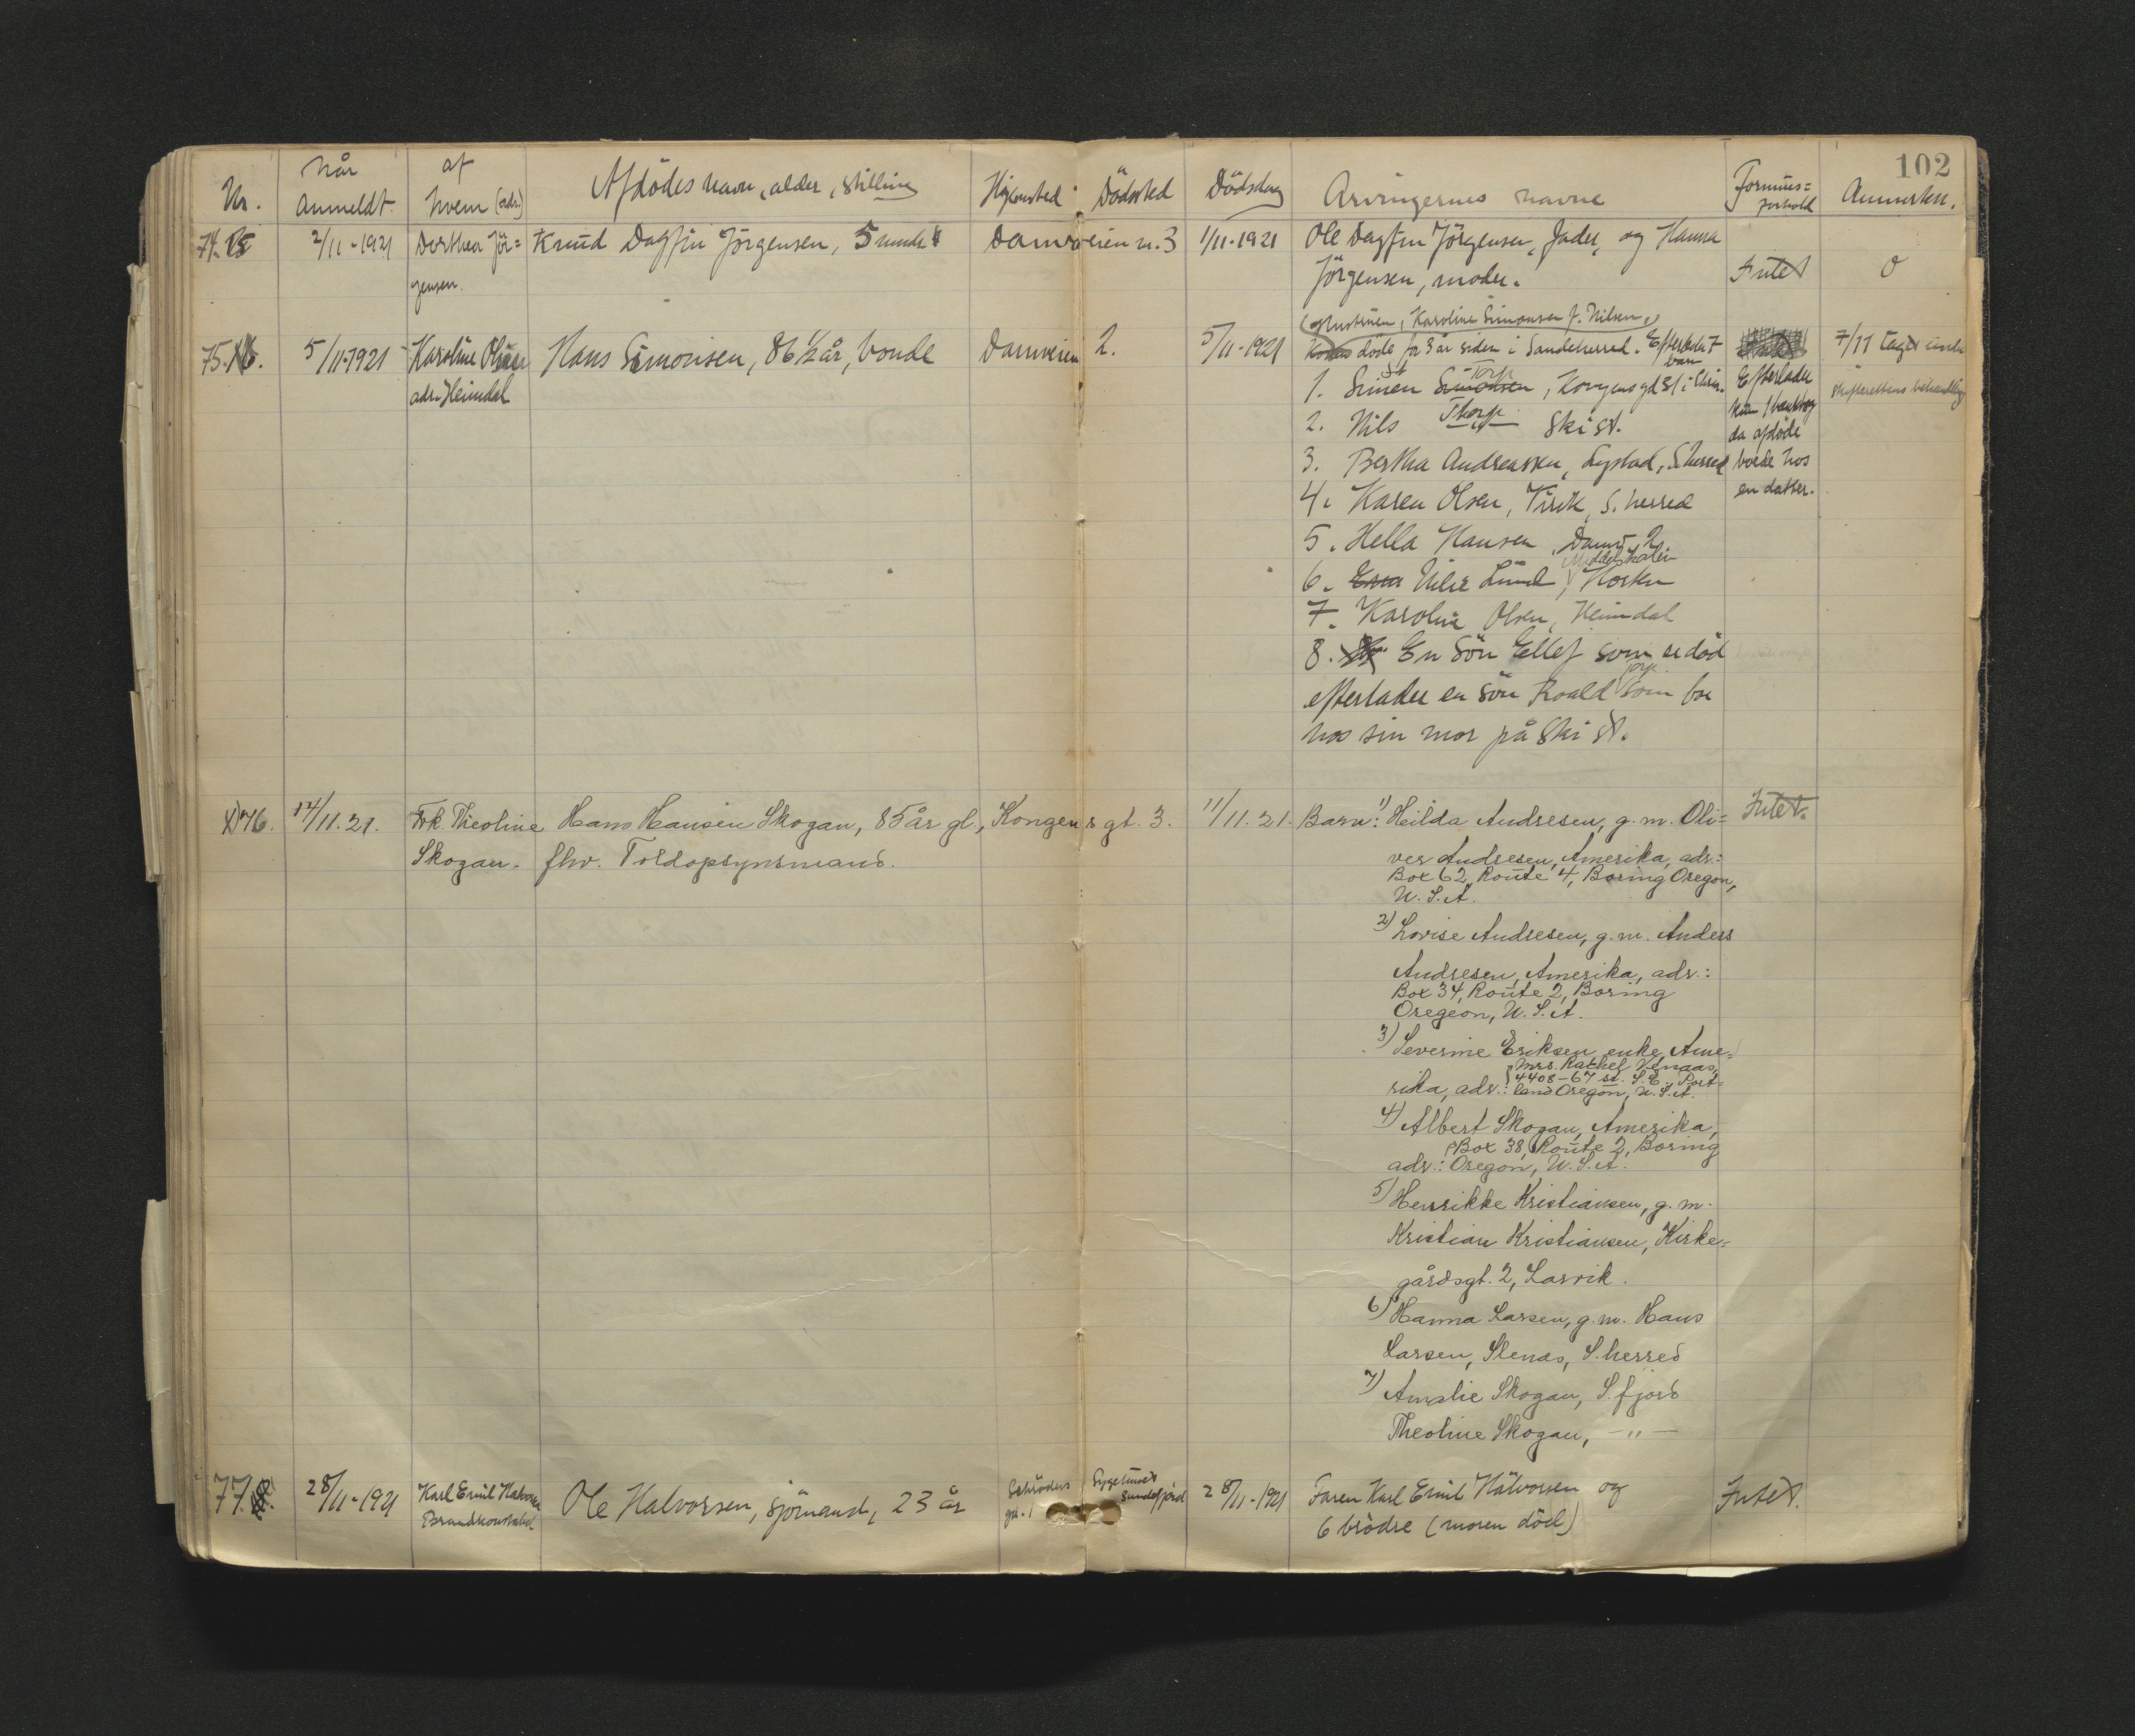 102
Nr.
Når anmeldt.
af hvem (adr.)
Afdödes navn, alder, stilling
Hjemsted
Dödssted
Dödsdag
Arvingernes navne
Formues=
forhold
Anmerkn.
74.
2/11-1921
Dorthea Jör=
gensen.
Knud Dagfin Jörgensen, 5 mndr
Damveien n. 3
1/11-1921
Ole Dagfin Jörgensen, fader, og Hanna
Jörgensen, moder.
Intet
0
75.
5/11-1921
Karoline Olsen
adr. Heimdal
Hans Simonsen, 86 1/2 år, bonde
Damveien 2.
5/11-1921
(Hustruen, Karoline Simonsen f. Nilsen,)
döde for 3 år siden i Sandeherred. Efterlader 7
barn
1. Simen Simonsen Torp, Kongensgd 81 i Chria.
2. Nils Thorp Ski st.
3. Bertha Andreassen, Lystad, S. herred
4. Karen Olsen, Virik, S. herred
5. Hella Hansen, Damv 2
6. Lund, Horten
7. Karoline Olsen, Heimdal
8. En sön Ellef som er död
efterlader en sön Roald Torp som bor
hos sin mor på Ski st.
Efterlader
da afdöde
boede hos
en datter.
7/11 taget under
skifterettens behandling
x) 76.
14/11.21.
Frk. Theoline
Skogan.
Hans Hansen Skogan, 85 år gl.,
fhv. Toldopsynsmand.
Kongens gt. 3.
11/11.21.
Barn: 1) Hilda Andresen, g. m. Oli=
ver Andresen, Amerika, adr.:
Box 62, Route 4, Boring Oregon,
U.S.A.
2) Lovise Andresen, g. m. Anders
Andresen, Amerika, adr.:
Box 34, Route 2, Boring
Oregeon, U.S.A.
3) Severine Eriksen, enke, Ame=
rika, adr.: Mrs. Rathel Venaas,
4408-67 st. S.E., Port=
land Oregon, U.S.A.
4) Albert Skogan, Amerika,
adr.: Box 38, Route 2, Boring
Oregon, U.S.A.
5) Henrikke Kristiansen, g. m.
Kristian Kristiansen, Kirke=
gårdsgt. 2, Larvik.
6) Hanna Larsen, g. m. Hans
Larsen, Slenas, S. herred
7) Amalie Skogan, S. fjord
Theoline Skogan, -"-
Intet.
77.
28/11-1921
Karl Emil Halvorsen
Brandkonstabel
Ole Halvorsen, sjömand, 23 år
Schröders
gt. 1
Sygehuset
Sandefjord
28/11-1921
Faren Karl Emil Halvorsen og
6 brödre (moren död)
Intet.